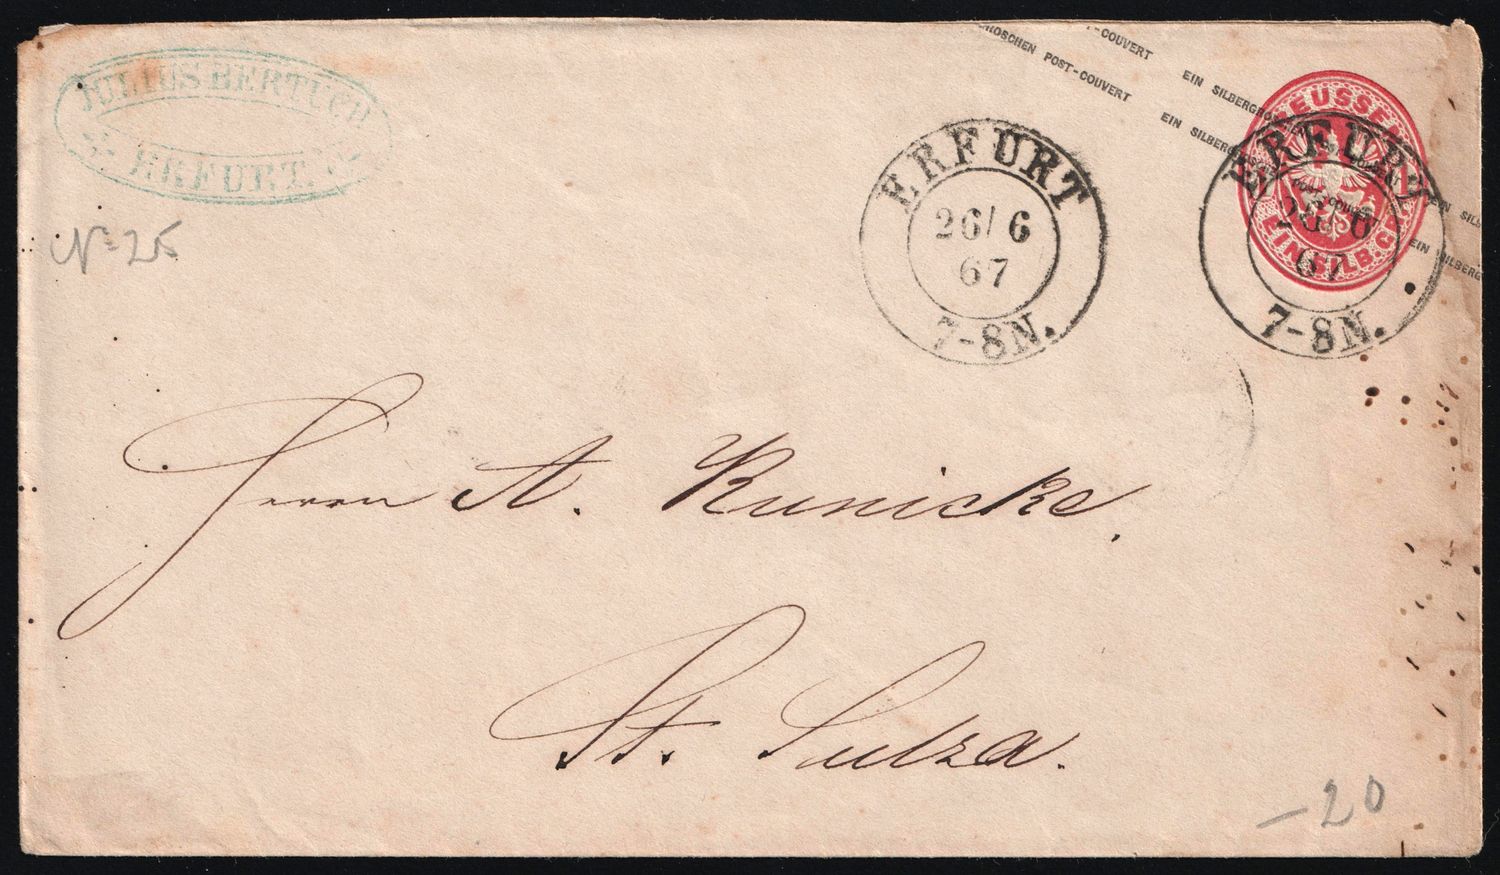 JULIUS BERTUCH
ERFURT.
No 25
GROSCHEN POST-COUVERT
T-COUVERT
EIN SILBERGRO
EIN SILBERG
EIN SILB
EIN SILBERG
PREUSSEN
EIN SILB. GR.
ERFURT
26/6
67
7-8N.
ERFURT
26/6
67
7-8N.
Herrn A. Kunicke,
St. Sulza.
-20